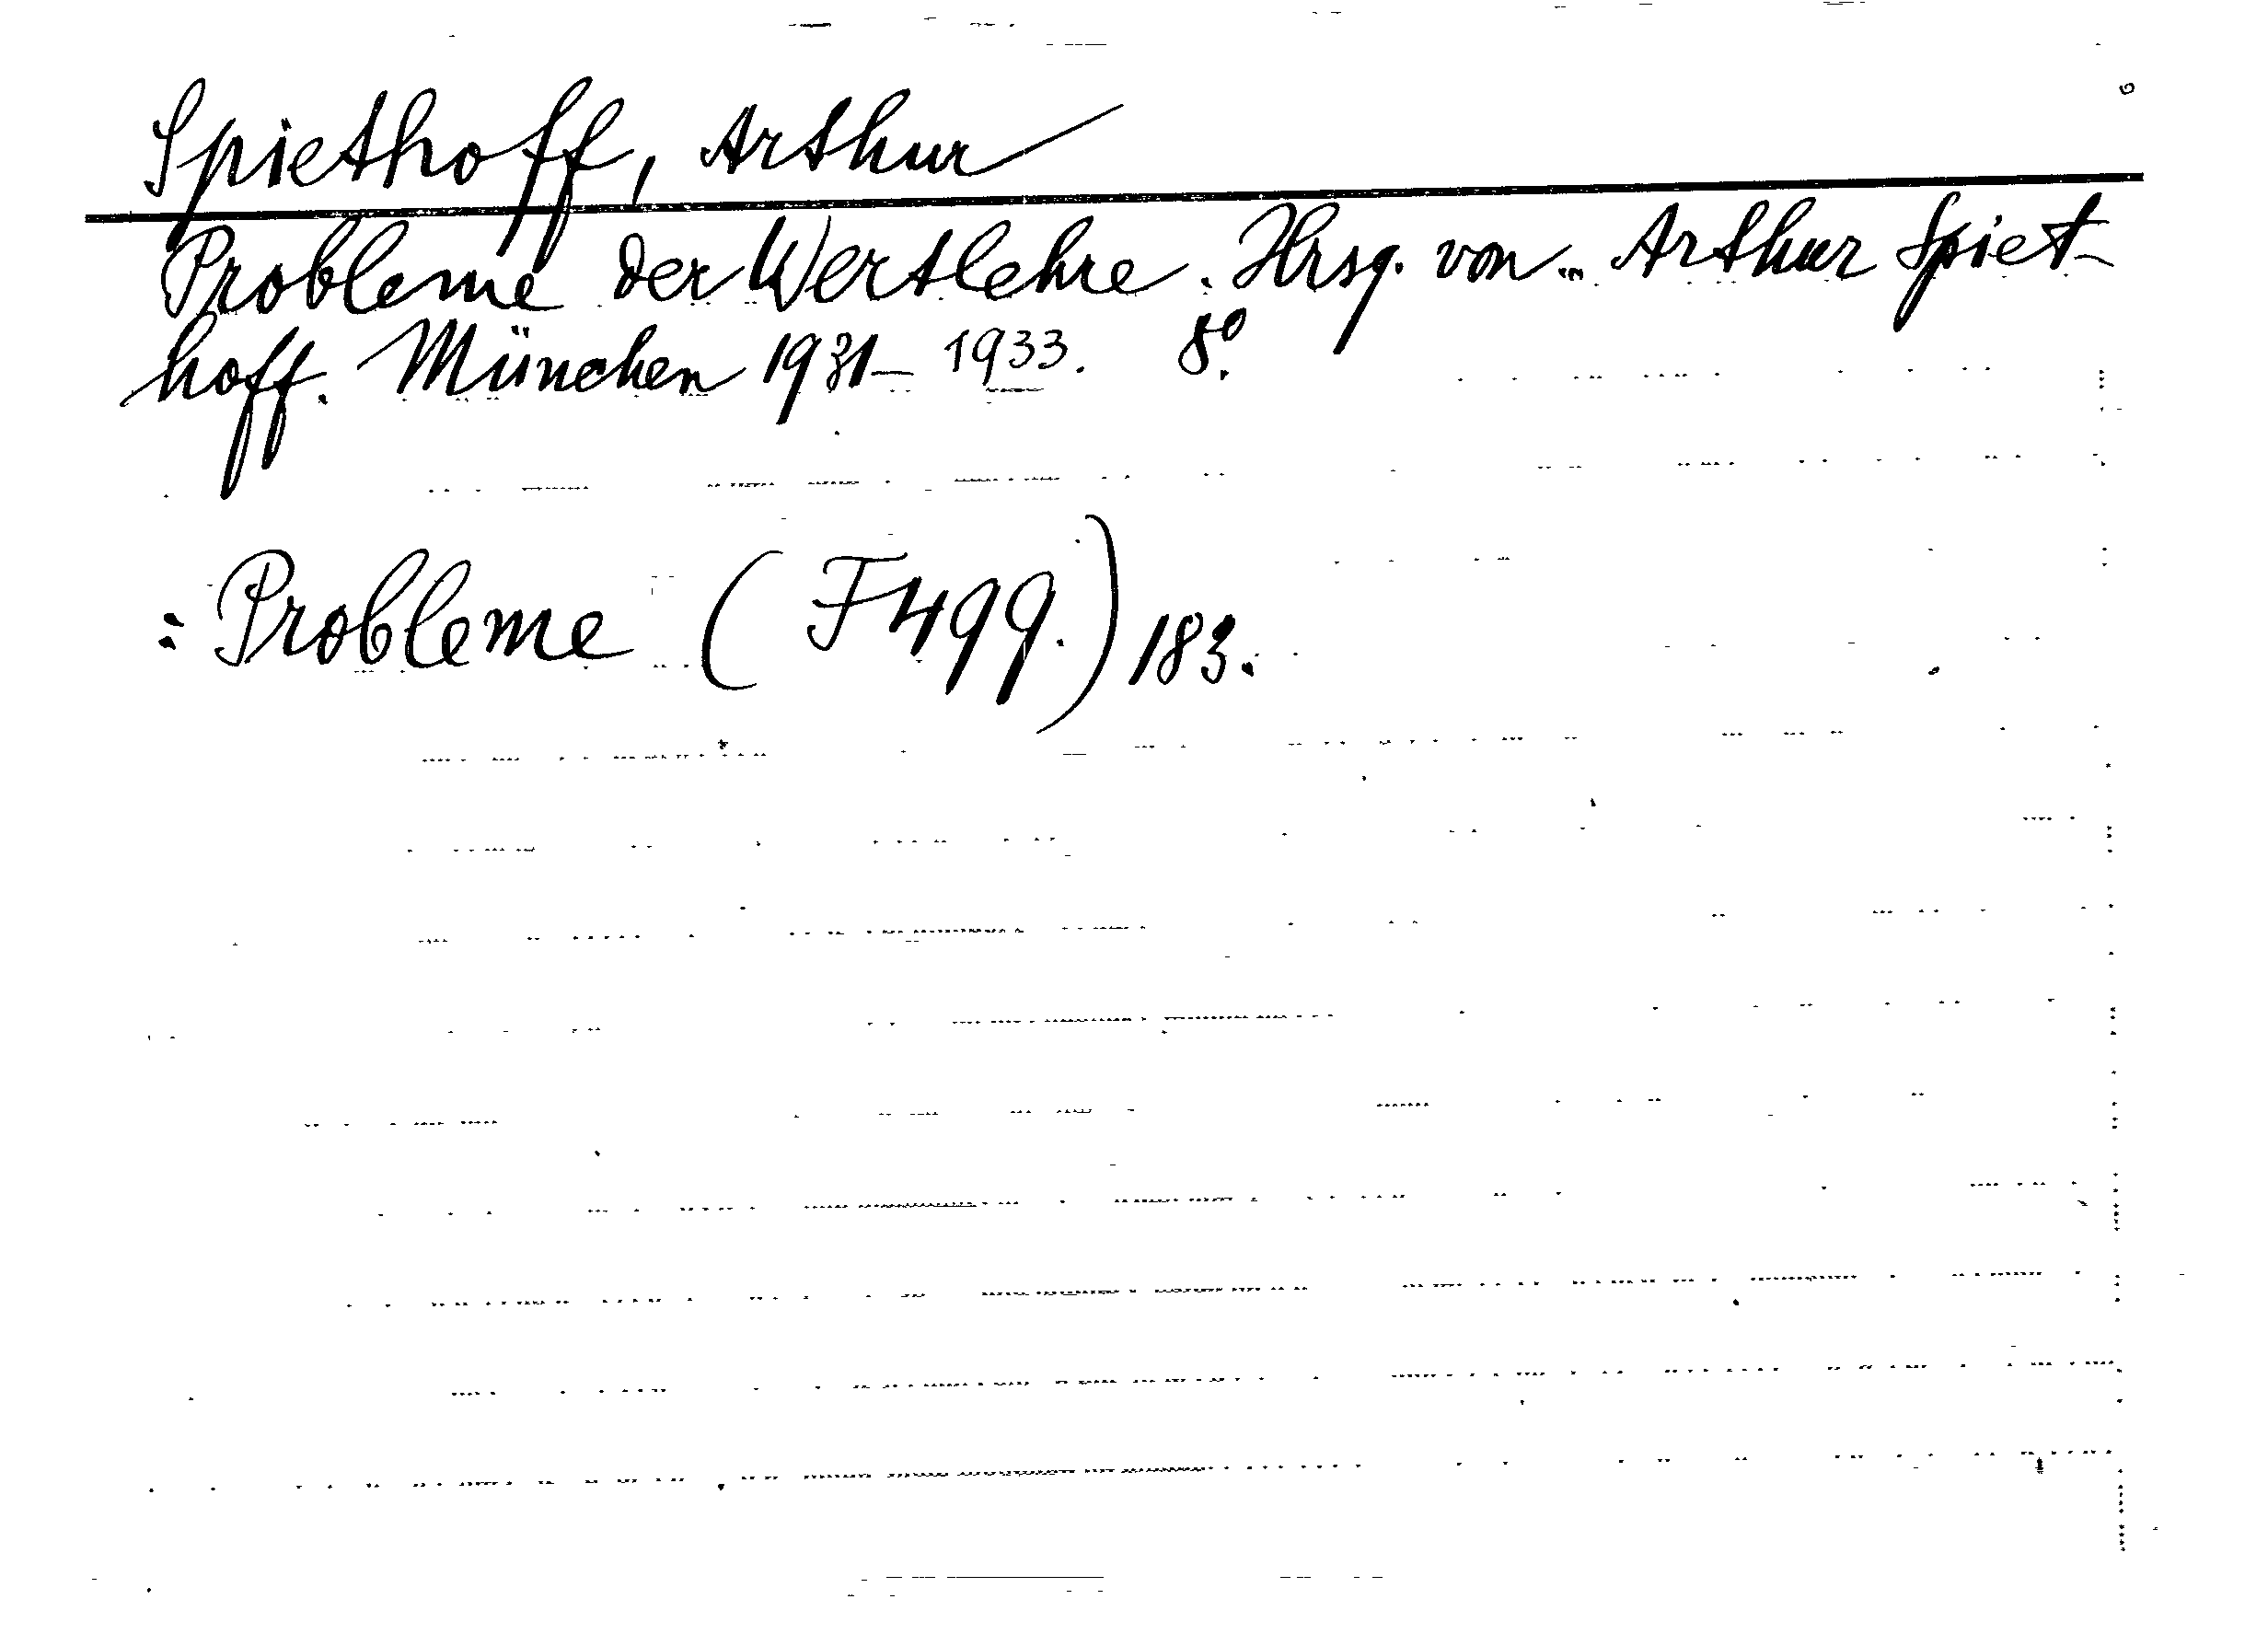 Spiethoff, Arthur
Probleme der Wertlehre. Hrsg. von... Arthur Spiet-
hoff. München 1931-1933. 8°.
: Probleme (F499.) 183.